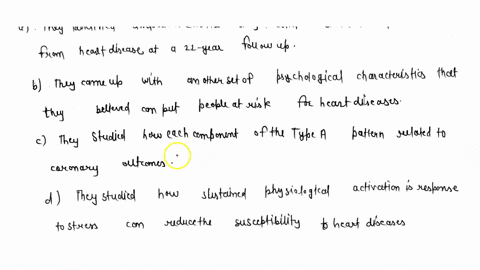 from heart disease at a 22-year follow up.
b) They came up with another set of psychological characteristics that
they believed can put people at risk for heart diseases.
c) They studied how each component of the Type A pattern related to
coronary outcomes.
d) They studied how sustained physiological activation is response
to stress can reduce the susceptibility to heart diseases